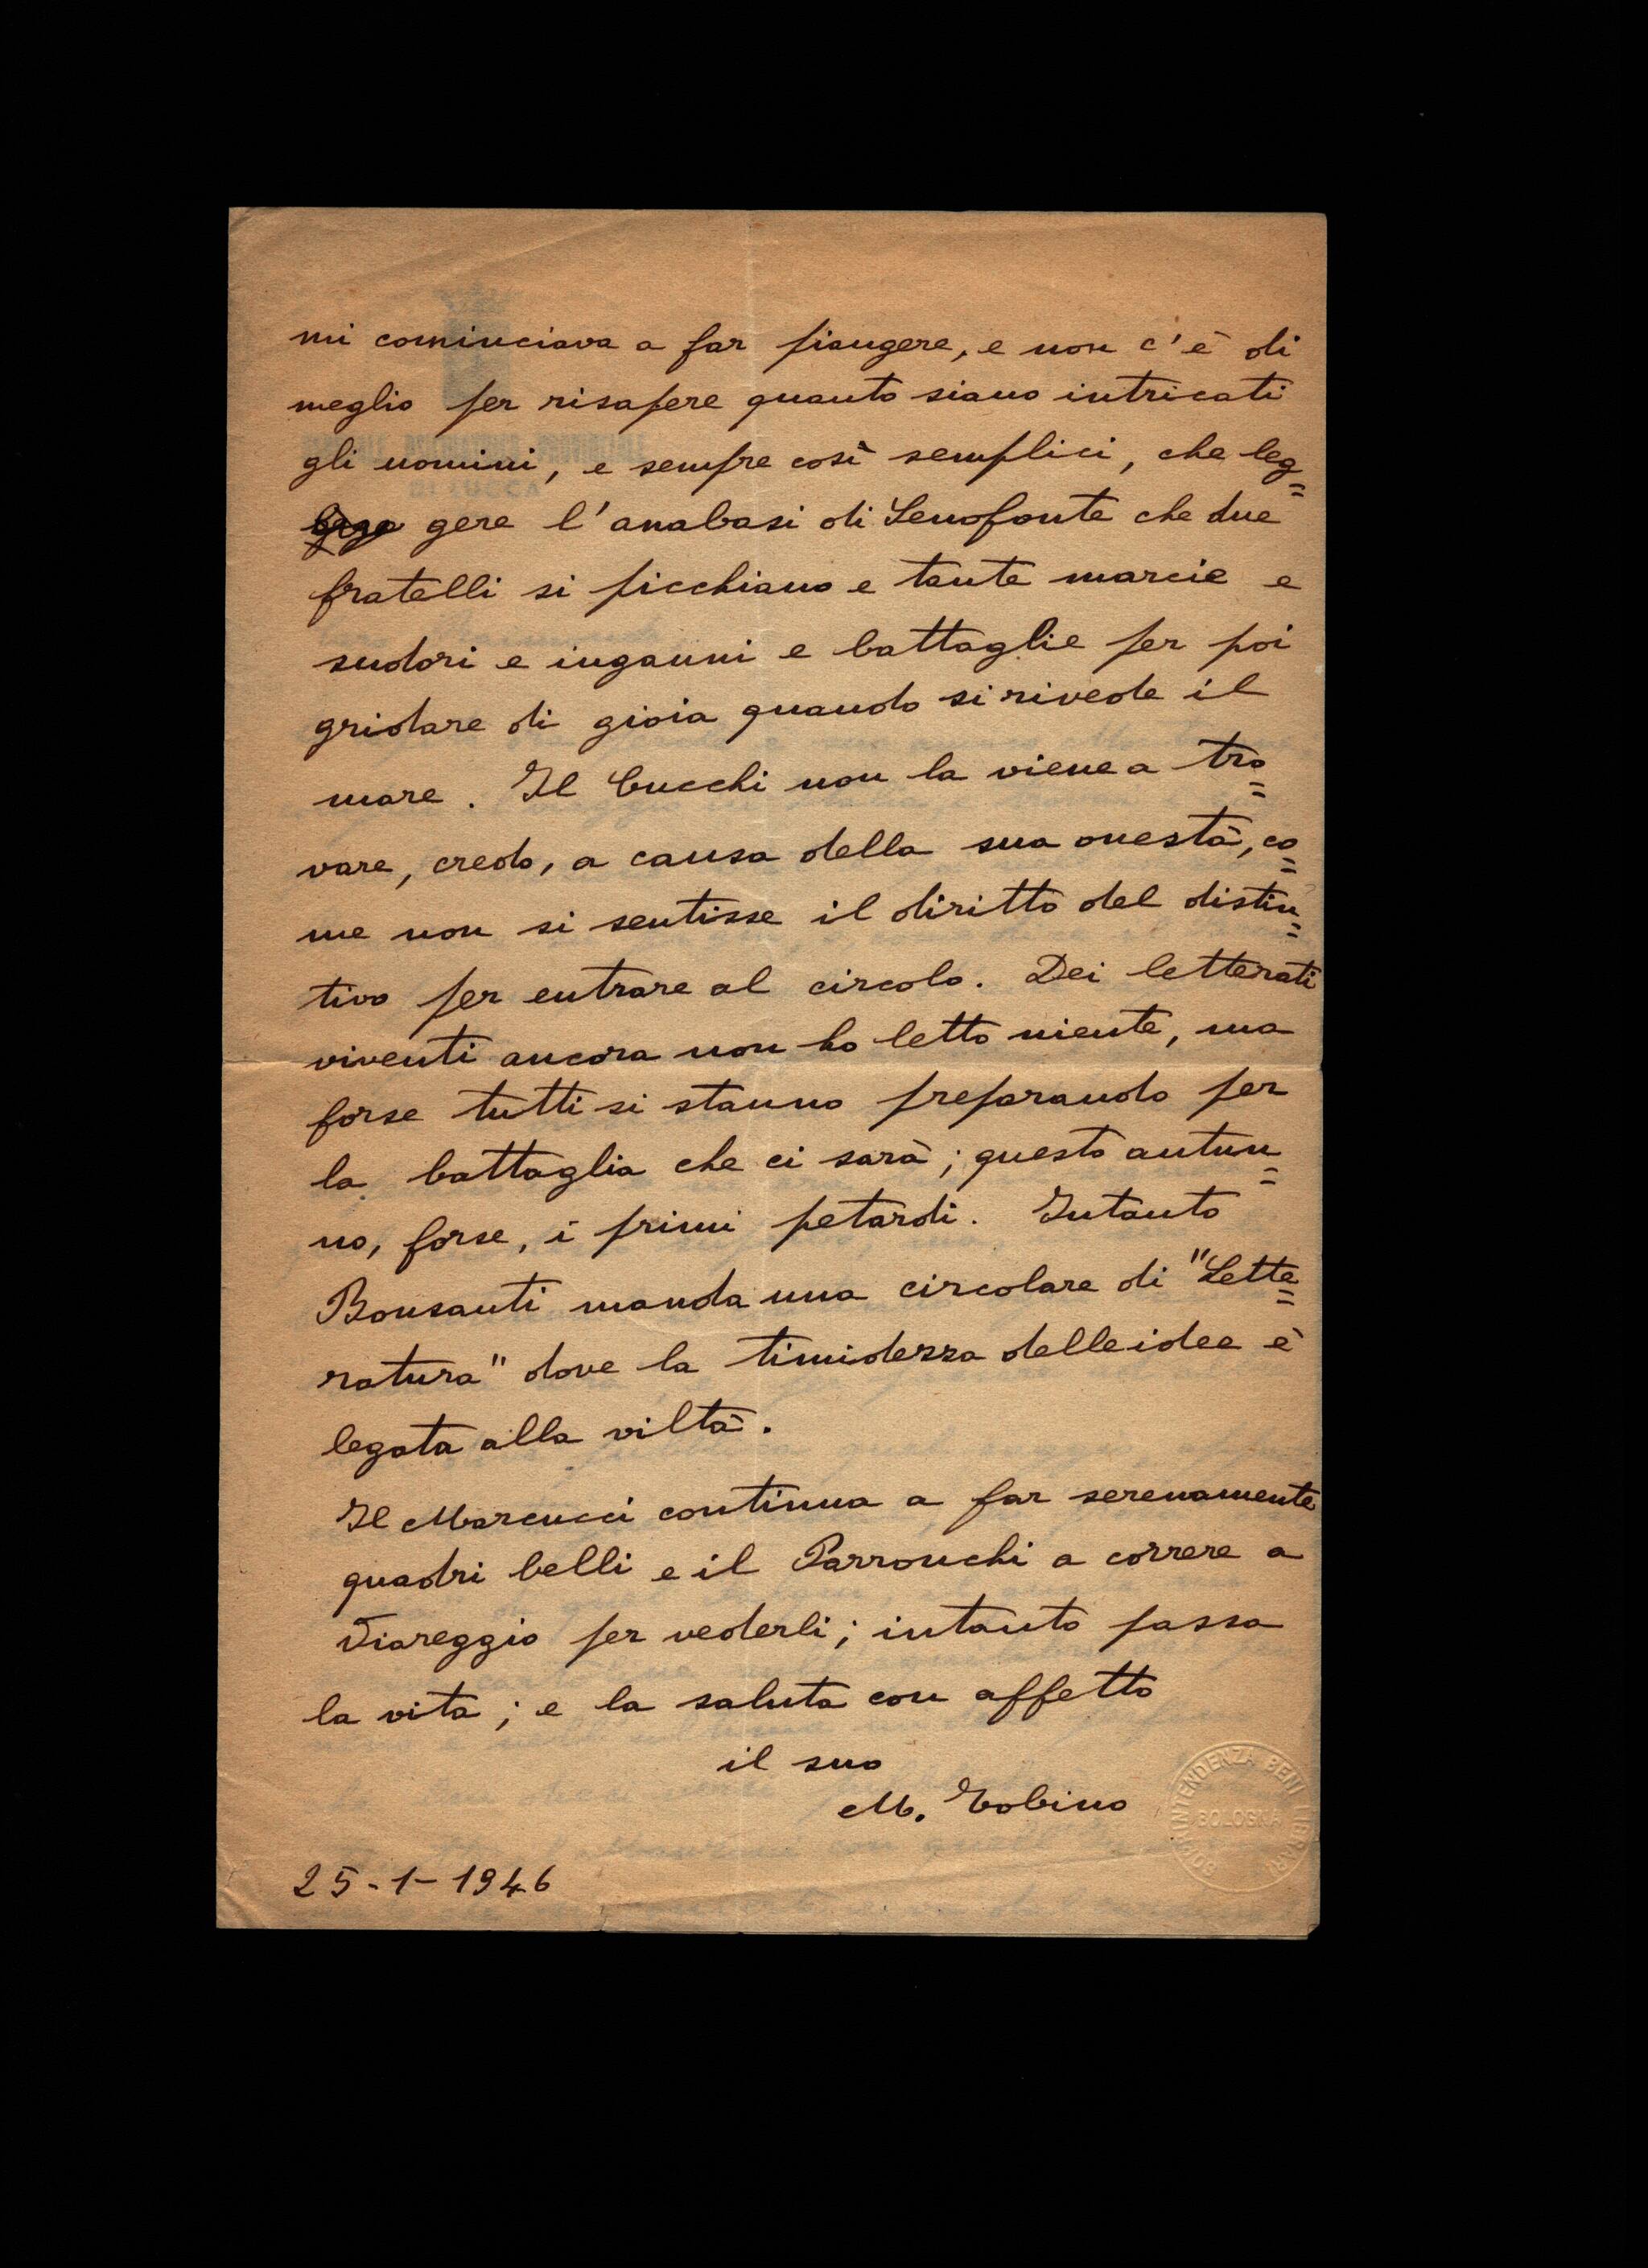 mi cominciava a far piangere, e non c'è di
meglio per risapere quanto siano intricati
gli uomini, e sempre così semplici, che leg=
gere l'anabasi di Senofonte che due
fratelli si picchiano e tante marcie e
sudori e inganni e battaglie per poi
gridare di gioia quando si rivede il
mare. Il Cucchi non la viene a tro=
vare, credo, a causa della sua onestà, co=
me non si sentisse il diritto del distin=
tivo per entrare al circolo. Dei letterati
viventi ancora non ho letto niente, ma
forse tutti si stanno preparando per
la battaglia che ci sarà; questo autun=
no, forse, i primi petardi. Intanto
Bonsanti manda una circolare di "Lette=
ratura" dove la timidezza delle idee è
legata alla viltà.
Il Marcucci continua a far serenamente
quadri belli e il Parronchi a correre a
Viareggio per vederli; intanto passa
la vita; e la saluta con affetto
il suo
M. Tobino
25-1-1946
SOPRINTENDENZA BENI LIBRARI
BOLOGNA
PROVINCIALE
DI LUCCA